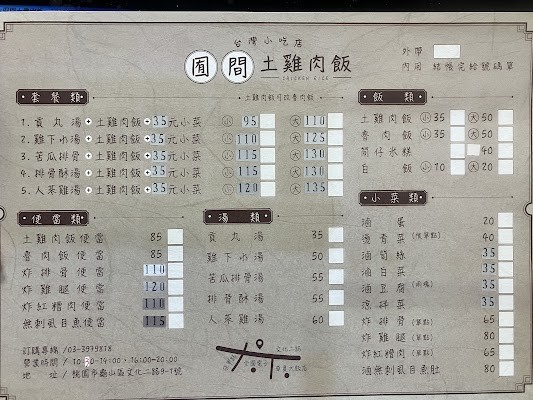 台灣小吃店
囿 間 土雞肉飯
CHICKEN RICE
外帶
內用 結帳完給號碼單
套餐類
土雞肉飯可改魯肉飯
1.貢丸湯+土雞肉飯+35元小菜 小95 大110
2.雞下水湯+土雞肉飯+35元小菜 小110 大125
3.苦瓜排骨+土雞肉飯+35元小菜 小115 大130
4.排骨酥湯+土雞肉飯+35元小菜 小115 大130
5.人蔘雞湯+土雞肉飯+35元小菜 小120 大135
飯類
土雞肉飯 小35 大50
魯肉飯 小35 大50
筒仔米糕 40
白飯 小10 大20
便當類
土雞肉飯便當 85
魯肉飯便當 85
炸排骨便當 110
炸雞腿便當 120
炸紅糟肉便當 110
無刺虱目魚便當 115
湯類
貢丸湯 35
雞下水湯 50
苦瓜排骨湯 55
排骨酥湯 55
人蔘雞湯 60
小菜類
滷蛋 20
燙青菜(限單點) 40
滷筍絲 35
滷白菜 35
滷豆腐 35
涼拌菜 35
炸排骨(單點) 65
炸雞腿(單點) 80
炸紅糟肉(單點) 65
滷無刺虱目魚肚 80
訂購專線/03-3979878
營業時間/10:30-14:00、16:00-20:00
地址/桃園市龜山區文化二路9-1號
文化二路